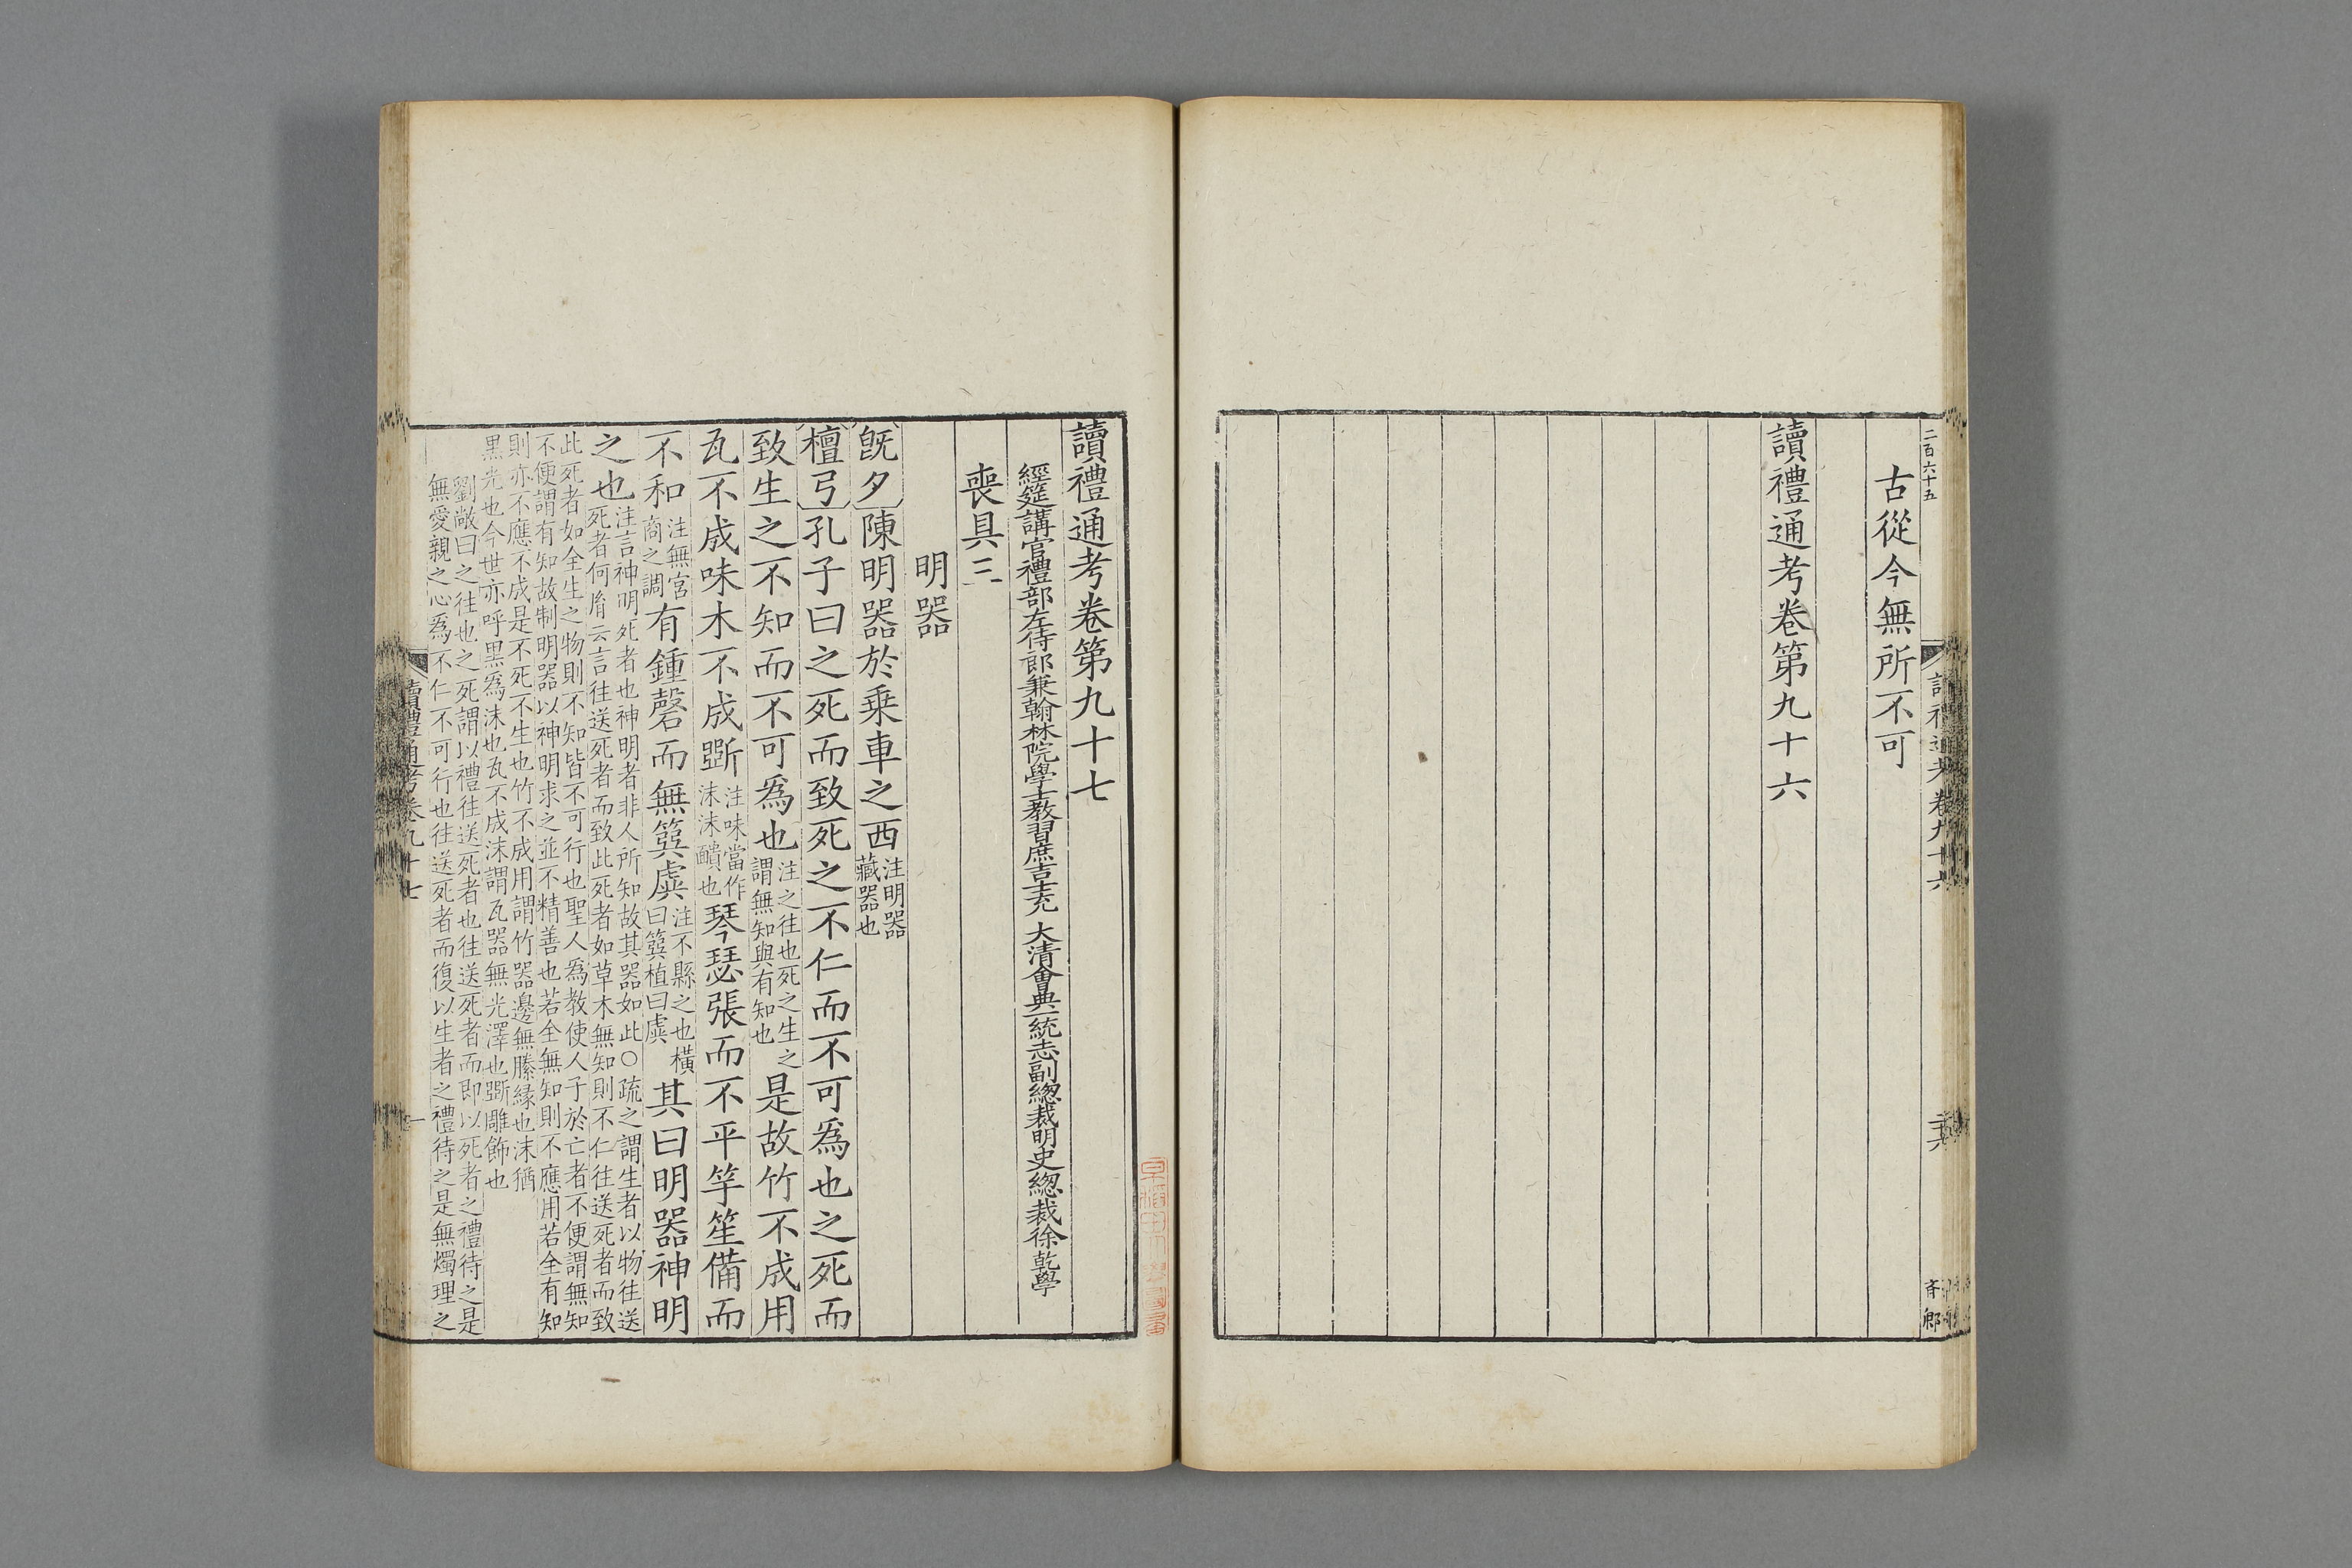 二百六十五
古從今無所不可
讀禮通考卷第九十六
讀禮通考卷第九十七
經筵講官禮部左侍郎兼翰林院學士教習庶吉士充 大清會典一統志副總裁明史總裁徐乾學
喪具三
明器
旣夕陳明器於乗車之西注明器藏器也
檀弓孔子曰之死而致死之不仁而不可爲也之死而
致生之不知而不可爲也注之往也死之生之謂無知與有知也是故竹不成用
瓦不成味木不成斲注味當作沫沫靧也琴瑟張而不平竽笙備而
不和注無宮商之調有鍾磬而無簨虡注不縣之也橫曰簨植曰虡其曰明器神明
之也注言神明死者也神明者非人所知故其器如此○疏之謂生者以物往送
死者何胤云言往送死者而致此死者如草木無知則不仁往送死者而致
此死者如全生之物則不知皆不可行也聖人爲教使人子於亡者不便謂無知
不便謂有知故制明器以神明求之並不精善也若全無知則不應用若全有知
則亦不應不成是不死不生也竹不成用謂竹器邊無縢緣也沫猶
黑光也今世亦呼黑爲沫也瓦不成沫謂瓦器無光澤也斲雕飾也
劉敞曰之往也之死謂以禮往送死者也往送死者而即以死者之禮待之是
無愛親之心爲不仁不可行也往送死者而復以生者之禮待之是無燭理之
讀禮通考卷九十七
一